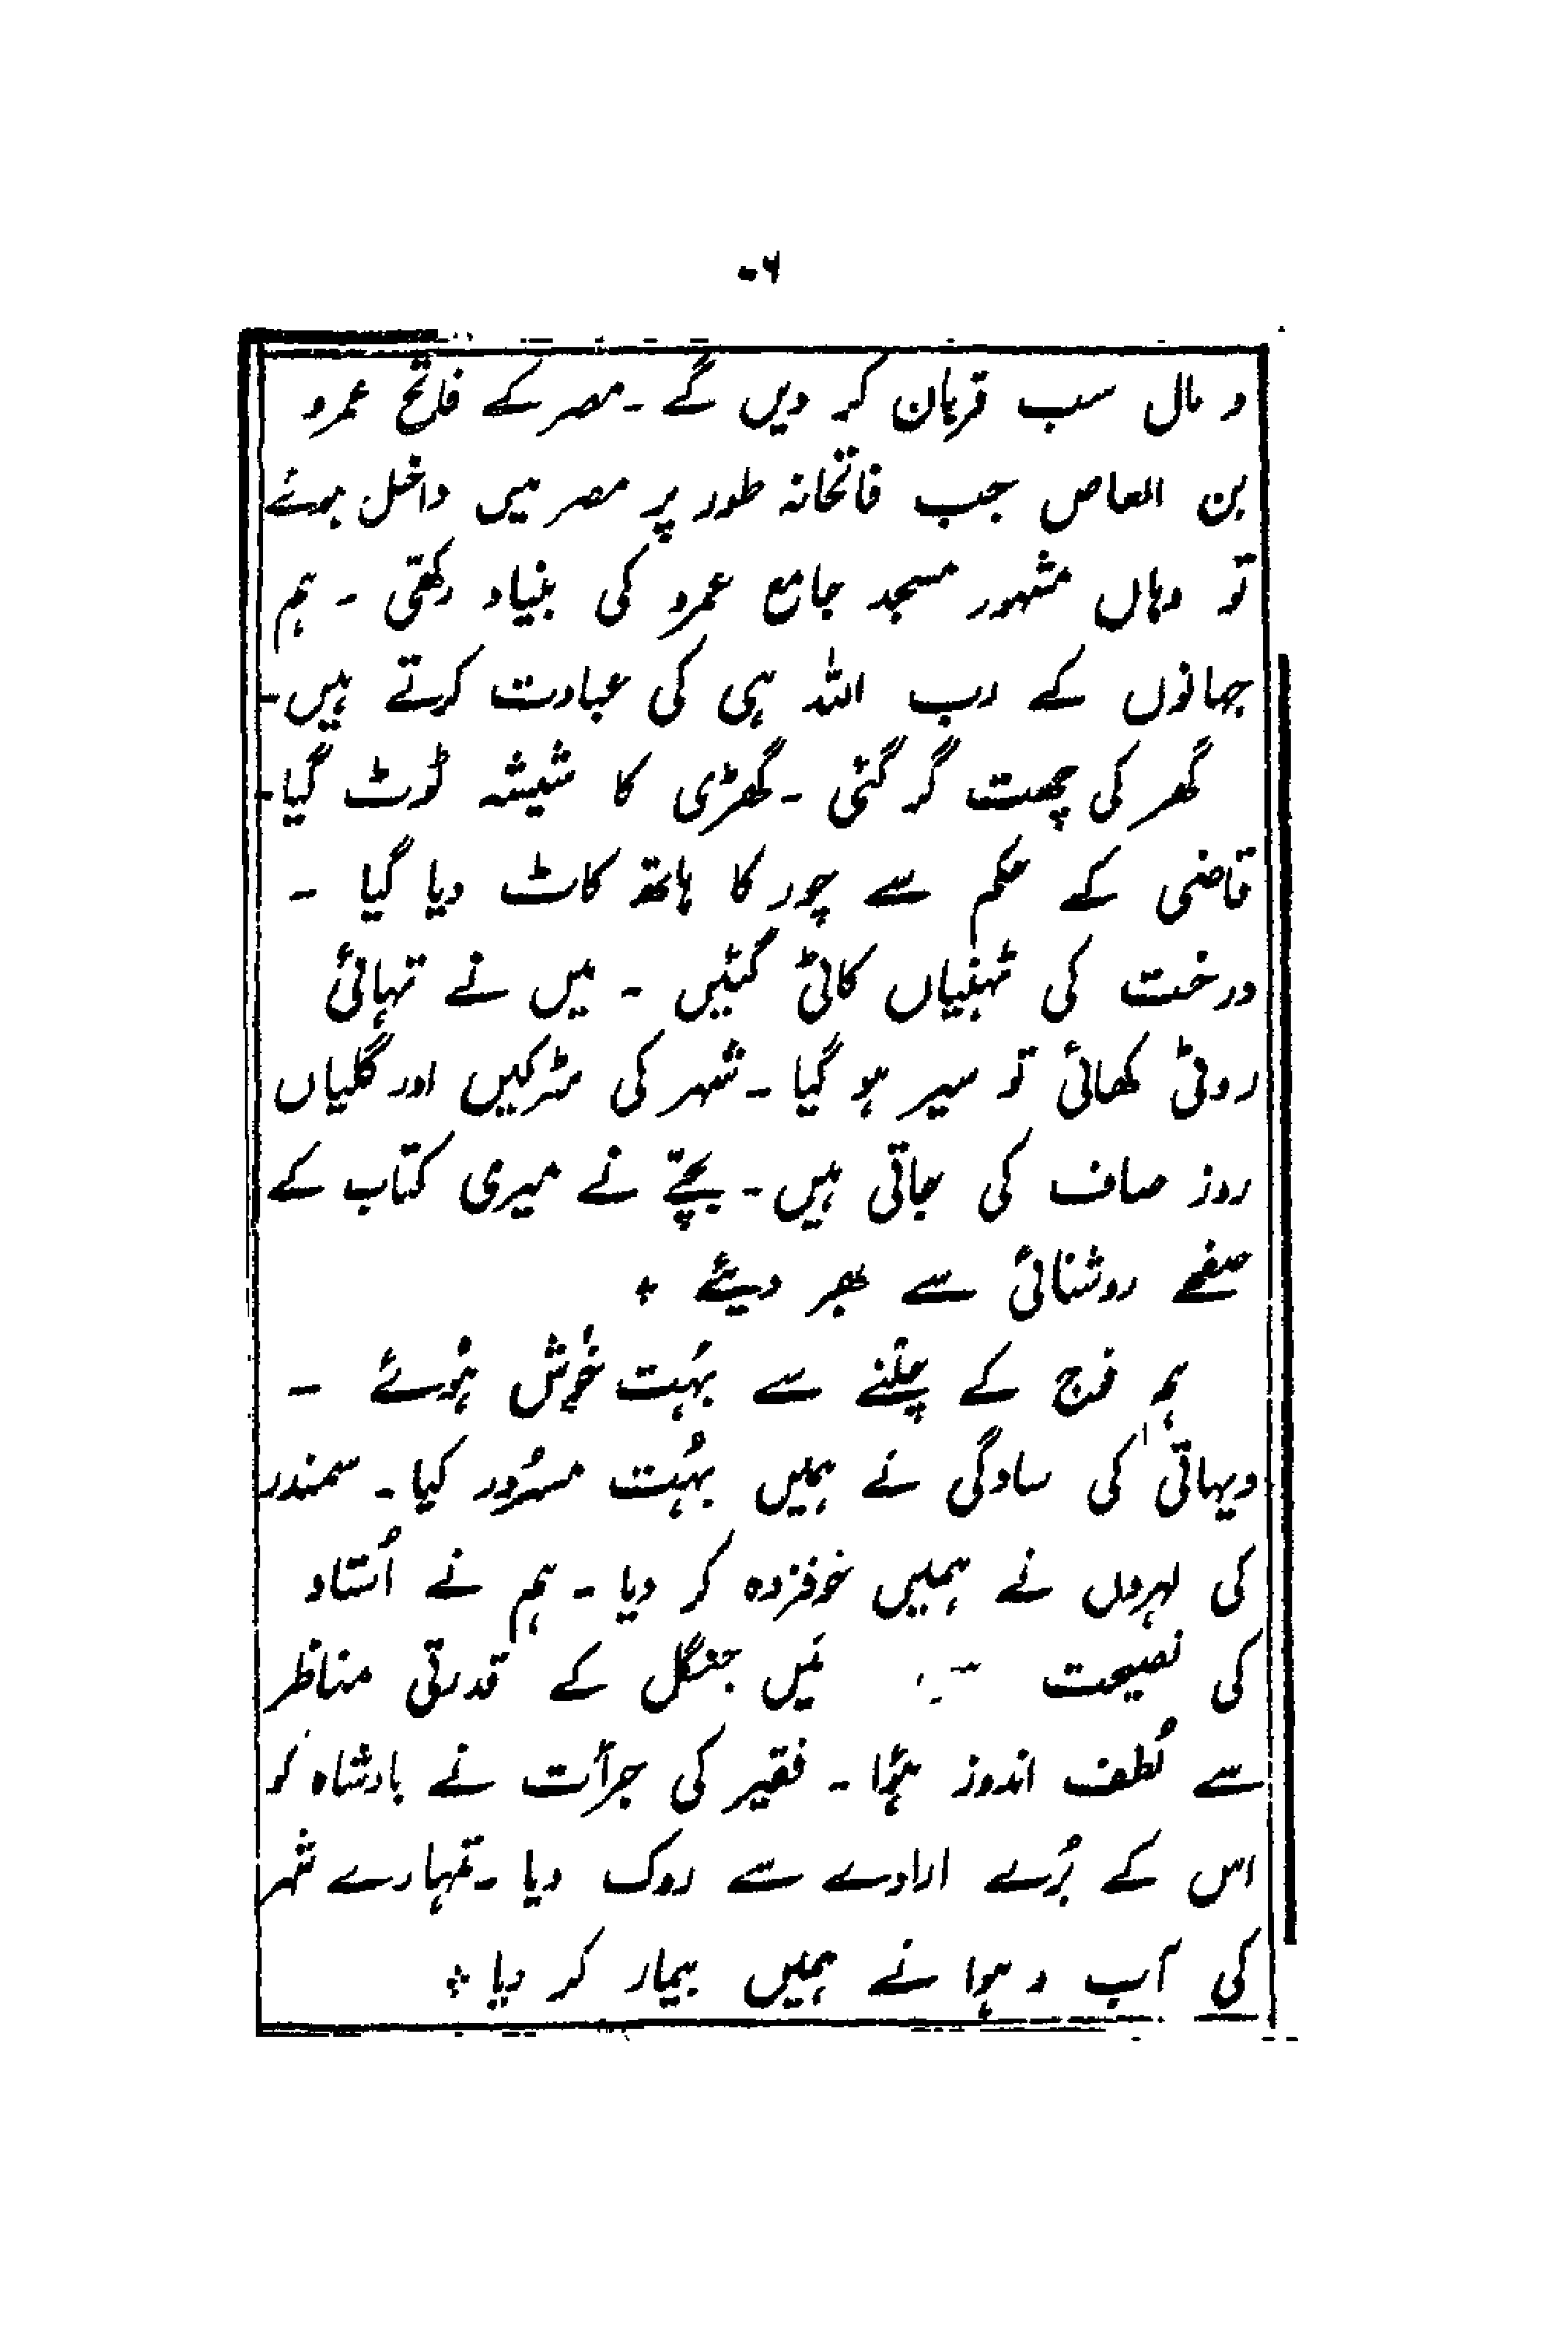 ۶۰
و مال سب قربان کر دیں گے ۔ مصر کے فاتح عمرو
بن العاص جب فاتحانہ طور پر مصر میں داخل ہوئے
تو وہاں مشہور مسجد جامع عمرو کی بنیاد رکھّی ۔ ہم
جہانوں کے رب اللہ ہی کی عبادت کرتے ہیں ۔
گھر کی چھت گر گئی ۔ گھڑی کا شیشہ ٹوٹ گیا ۔
قاضی کے حکم سے چور کا ہاتھ کاٹ دیا گیا ۔
درخت کی ٹہنیاں کاٹی گئیں ۔ میں نے تہائی
روٹی کھائی تو سیر ہو گیا ۔ شہر کی سڑکیں اور گلیاں
روز صاف کی جاتی ہیں ۔ بچّے نے میری کتاب کے
صفحے روشنائی سے بھر دیئے ۔
ہم فوج کے چلنے سے بہُت خُوش ہُوئے ۔
دیہاتی کی سادگی نے ہمیں بہُت مسرُور کیا ۔ سمندر
کی لہروں نے ہمیں خوفزدہ کر دیا ۔ ہم نے اُستاد
کی نصیحت مَیں جنگل کے قدرتی مناظر
سے لُطف اندوز ہُوا ۔ فقیر کی جرأت نے بادشاہ کو
اس کے بُرے ارادے سے روک دیا ۔ تمہارے شہر
کی آب و ہوا نے ہمیں بیمار کر دیا ۔